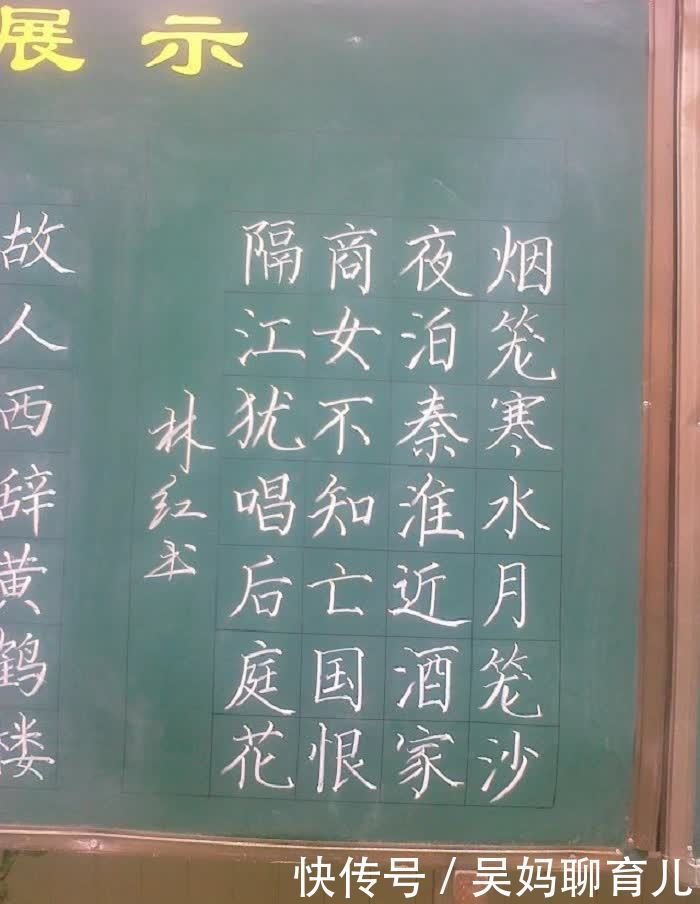 展示
烟笼寒水月笼沙
夜泊秦淮近酒家
商女不知亡国恨
隔江犹唱后庭花
林红书
故人西辞黄鹤楼
快传号/吴妈聊育儿